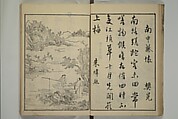 南中感懷 樊晃
南路蹉跎客未回常
嗟物候暗相催四時不
變江頭草十月先開嶺
上梅